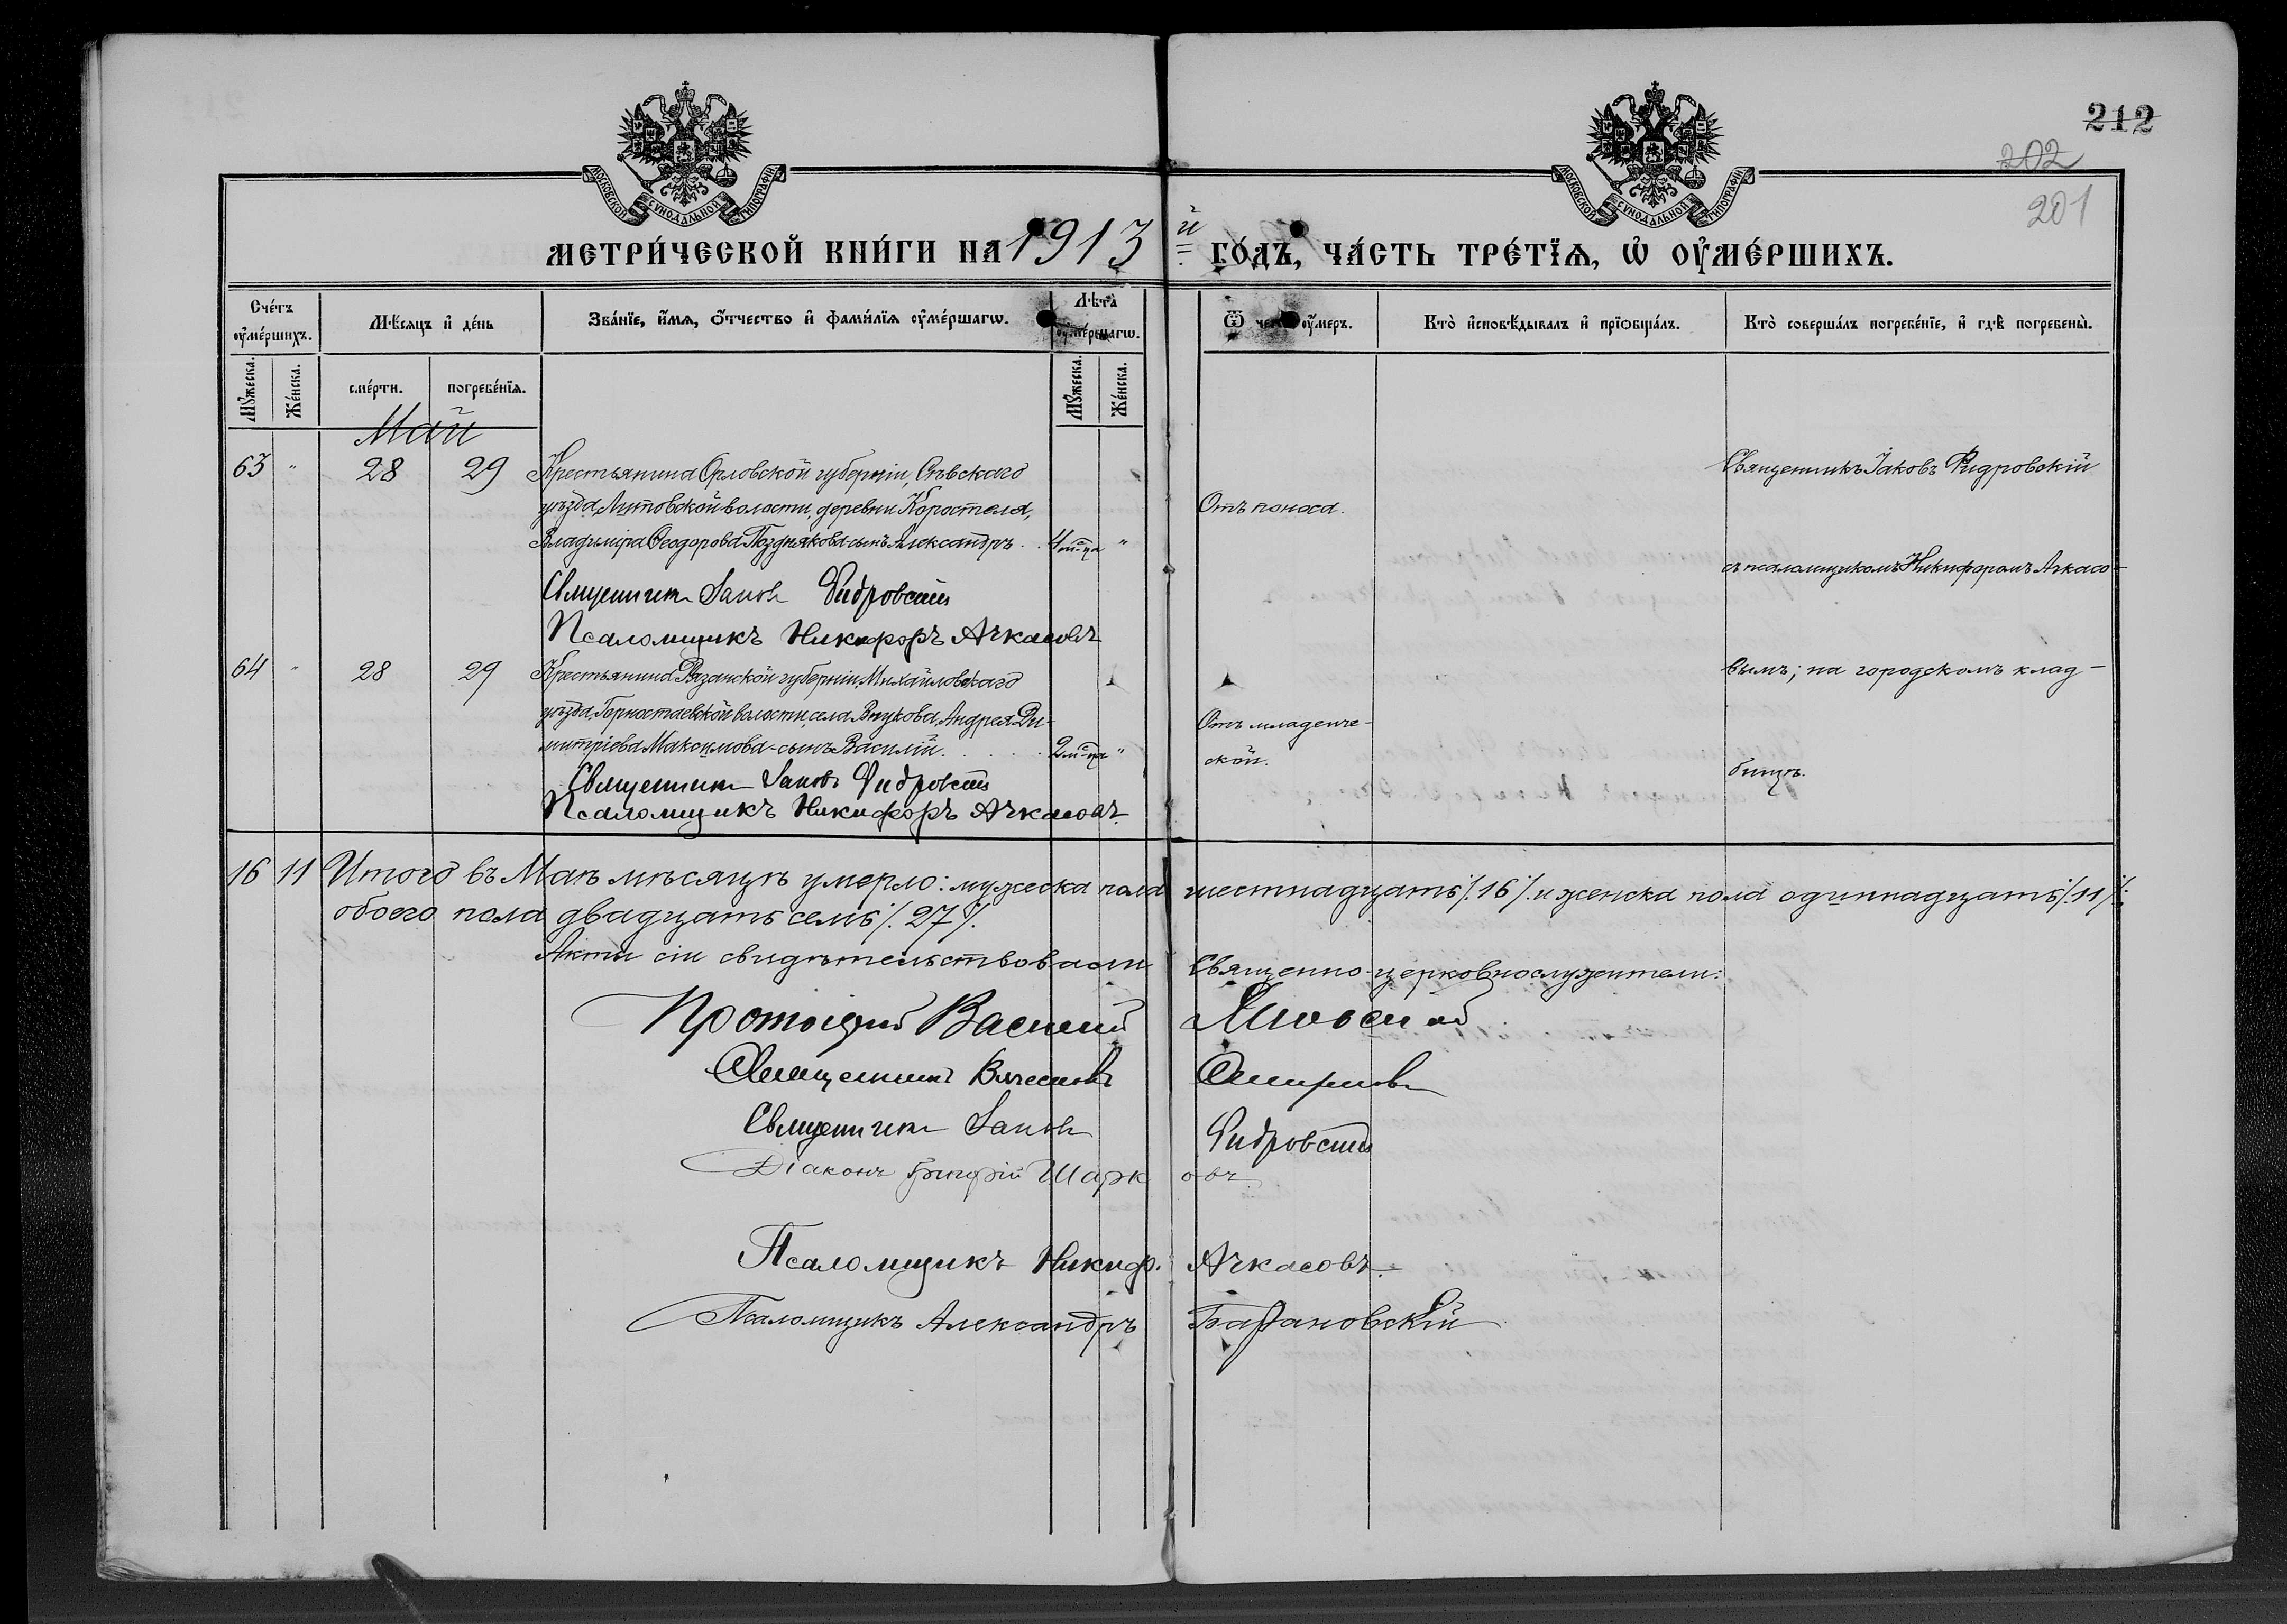 212
202
201
МОСКОВСКОЙ СѴНОДАЛЬНОЙ ТИПОГРАФІИ
МОСКОВСКОЙ СѴНОДАЛЬНОЙ ТИПОГРАФІИ
МЕТРИ́ЧЕСКОЙ КНИ́ГИ НА 1913 й ГО́ДЪ, ЧА́СТЬ ТРЕ́ТЇѦ, Ѡ҆ ОУ҆МЕ́РШИХЪ.
Сче́тъ оу҆ме́ршихъ.
Мꙋ́жеска.
Же́нска.
Мѣ́сяцъ и҆ де́нь
сме́рти.
погребе́нїѧ.
Зва́нїе, и҆́мѧ, ѻ҆́тчество и҆ фами́лїѧ оу҆ме́ршагѡ.
Лѣ́та̀ оу҆ме́ршагѡ.
Мꙋ́жеска.
Же́нска.
Ѿ чегѡ̀ оу҆́меръ.
Кто̀ и҆сповѣ́дывалъ и҆ прїѻбща́лъ.
Кто̀ соверша́лъ погребе́нїе, и҆ гдѣ̀ погребены̀.
Май
63 " 28 29 Крестьянина Орловской губерніи, Сѣвскаго
уѣзда, Литовской волости, деревни Коростеля,
Владиміра Ѳеодорова Позднякова сынъ Александръ . . 4 м-ца "
Отъ поноса.
Священникъ Іаковъ Фидровскій
съ псаломщикомъ Никифоромъ Ачкасо-
Священникъ Іаковъ Фидровскій
Псаломщикъ Никифоръ Ачкасовъ
64 " 28 29 Крестьянина Рязанской губерніи, Михайловскаго
уѣзда, Горностаевской волости, села Внукова, Андрея Ди-
митріева Максимова - сынъ Василій. . . . . 2 м-ца "
Отъ младенче-
ской.
вымъ; на городскомъ клад-
бищѣ.
Священникъ Іаковъ Фидровскій
Псаломщикъ Никифоръ Ачкасовъ.
16 11 Итого въ Маѣ мѣсяцѣ умерло: мужеска пола шестнадцать /. 16 /. и женска пола одиннадцать /. 11 /.;
обоего пола двадцать семь /. 27 /.
Акты сіи свидѣтельствовали Священно-церковнослужители:
Протоіерей Василій
Священникъ Вячеславъ Смирновъ
Священникъ Іаковъ Фидровскій
Діаконъ Григорій Шарковъ
Псаломщикъ Никиф. Ачкасовъ.
Псаломщикъ Александръ Барановскій